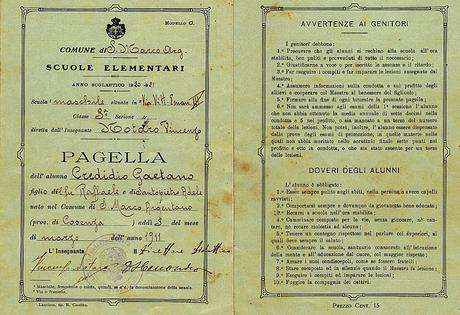 MODELLO G.
COMUNE di S. Marco Arg.
SCUOLE ELEMENTARI
ANNO SCOLASTICO 1920-21
Scuola maschile situata in Via V. Eman.
Classe 3ª Sezione "
diretta dall'Insegnante Notaro Vincenzo
PAGELLA
dell'alunno Credidio Gaetano
figlio di fu Raffaele e di Santopietro Adele
nato nel Comune di S. Marco Argentano
(prov. di Cosenza) addì 3 del mese
di marzo dell'anno 1911
L'Insegnante Il Direttore
Vincenzo Notaro
¹ Maschile, femminile o mista, quindi, se c'è, la denominazione della scuola.
² Via o frazione.
AVVERTENZE AI GENITORI
I genitori debbono:
1.º Procurare che gli alunni si rechino alla scuola all'ora
stabilita, ben puliti e provveduti di tutto il necessario;
2.º Giustificarne a voce o per iscritto le assenze e il ritardo;
3.º Far eseguire i compiti e far imparare le lezioni assegnate dal
Maestro;
4.º Assumere informazioni sulla condotta e sul profitto degli
allievi e cooperare col Maestro al benessere dei figliuoli;
5.º Firmare alla fine di ogni bimestre la presente pagella;
6.º Non sono ammessi agli esami della 1ª sessione l'alunno
che non abbia ottenuto la media annuale di sette decimi nella
condotta e 5 nel profitto, o sia mancato a un terzo del numero
totale delle lezioni. Non può, inoltre, l'alunno essere dispensato
dalla prova degli esami di promozione, in quelle materie nelle
quali non abbia meritato nello scrutinio finale sette punti nel
profitto e otto in condotta, o che sia stato assente per un terzo
delle lezioni.
DOVERI DEGLI ALUNNI
L'alunno è obbligato:
1.º Esser sempre pulito negli abiti, nella persona e avere capelli
ravviati;
2.º Essere ubbidiente, rispettoso, buono, educato;
3.º Recarsi a scuola nell'ora stabilita;
4.º Camminare composto per le vie, senza giocare, nè can-
tare, nè recare molestia ad alcuno;
5.º Tenere un contegno rispettoso nel parlare coi superiori, ai
quali deve sempre il saluto;
6.º Considerare la scuola, santuario consacrato all'istruzione
della mente e all'educazione del cuore, col maggior rispetto;
7.º Amare i suoi condiscepoli, come se fossero fratelli;
8.º Stare composto ed in silenzio quando il Maestro fa lezione;
9.º Eseguire i compiti e imparare le lezioni;
10.º Fuggire la compagnia dei cattivi.
PREZZO CENT. 15